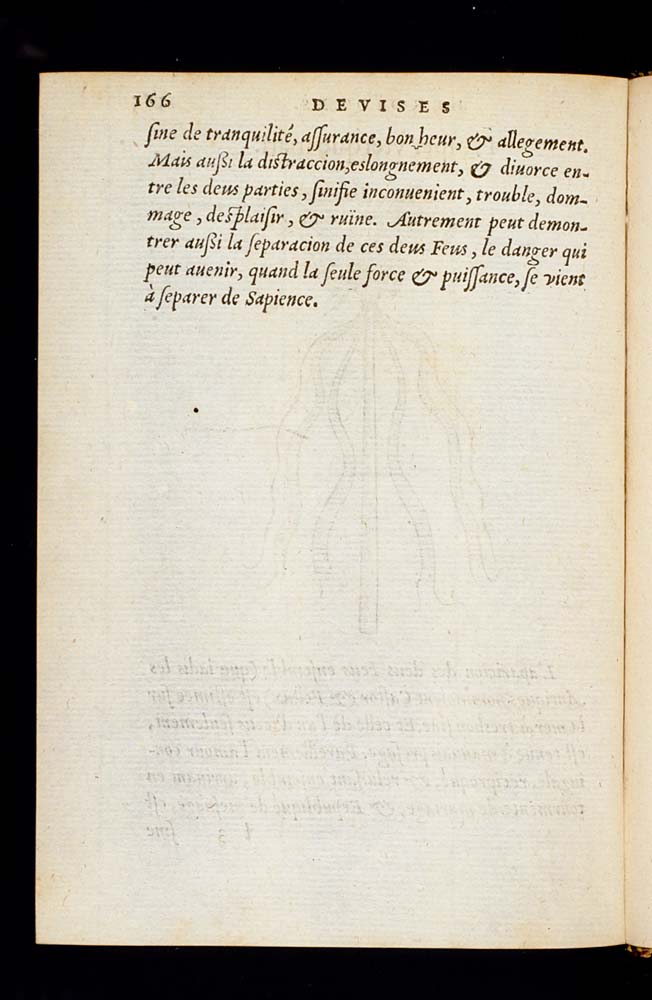 166 DEVISES
ſine de tranquilité, aſſurance, bon heur, & allegement.
Mais außi la distraccion, eslongnement, & diuorce en-
tre les deus parties, ſinifie inconuenient, trouble, dom-
mage, desplaiſir, & ruïne. Autrement peut demon-
trer außi la ſeparacion de ces deus Feus, le danger qui
peut auenir, quand la ſeule force & puiſſance, ſe vient
à ſeparer de Sapience.